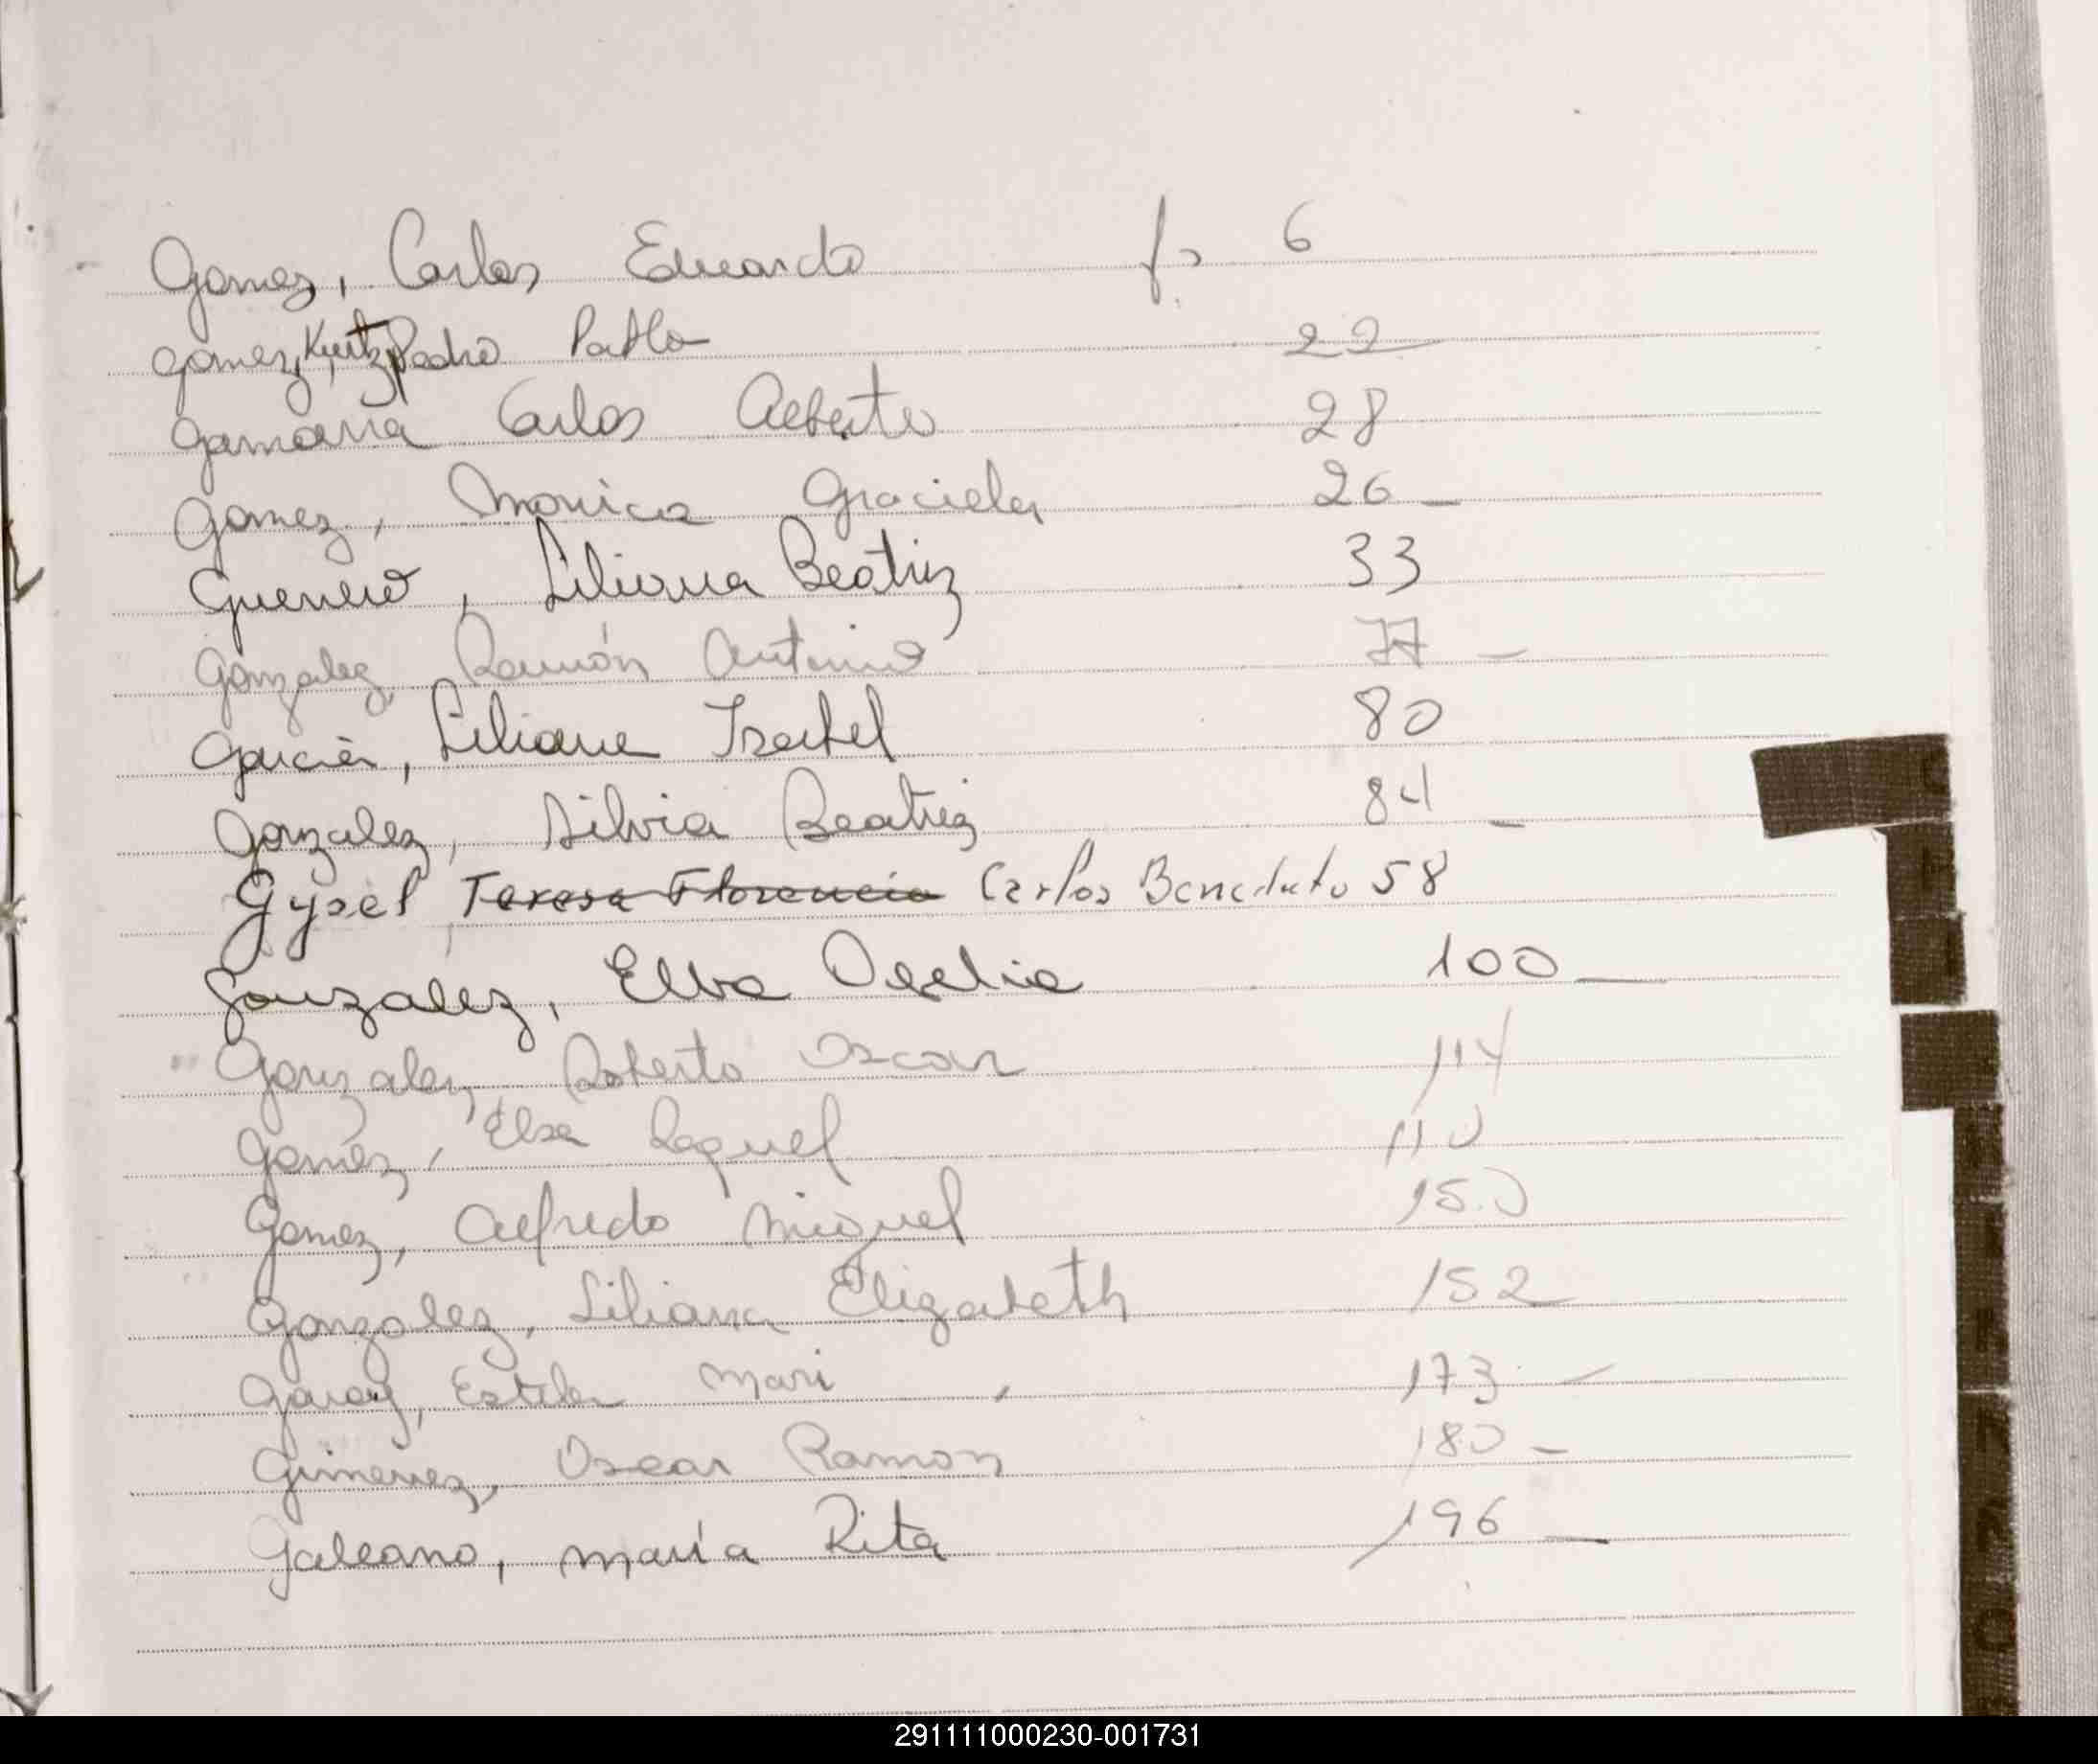 Gomez, Carlos Eduardo fs 6
Gomez, Kurtz, Pedro Pablo 22
Gamarra Carlos Alberto 28
Gomez, Monica Graciela 26 -
Guerrero, Liliana Beatriz 33
Gonzalez, Ramón Antonio 77 -
Garcia, Liliana Isabel 80
Gonzalez, Silvia Beatriz 84 -
Gysel Teresa Florencia Carlos Benedicto 58
Gonzalez, Elba 100 -
Gonzalez, Roberto Oscar 114
Gomez, Elsa Raquel 110
Gomez, Alfredo Miguel 150
Gonzalez, Liliana Elizabeth 152
Garay, Estela Mari 173 -
Gimenez, Oscar Ramon 180 -
Galeano, María Rita 196 -
291111000230-001731